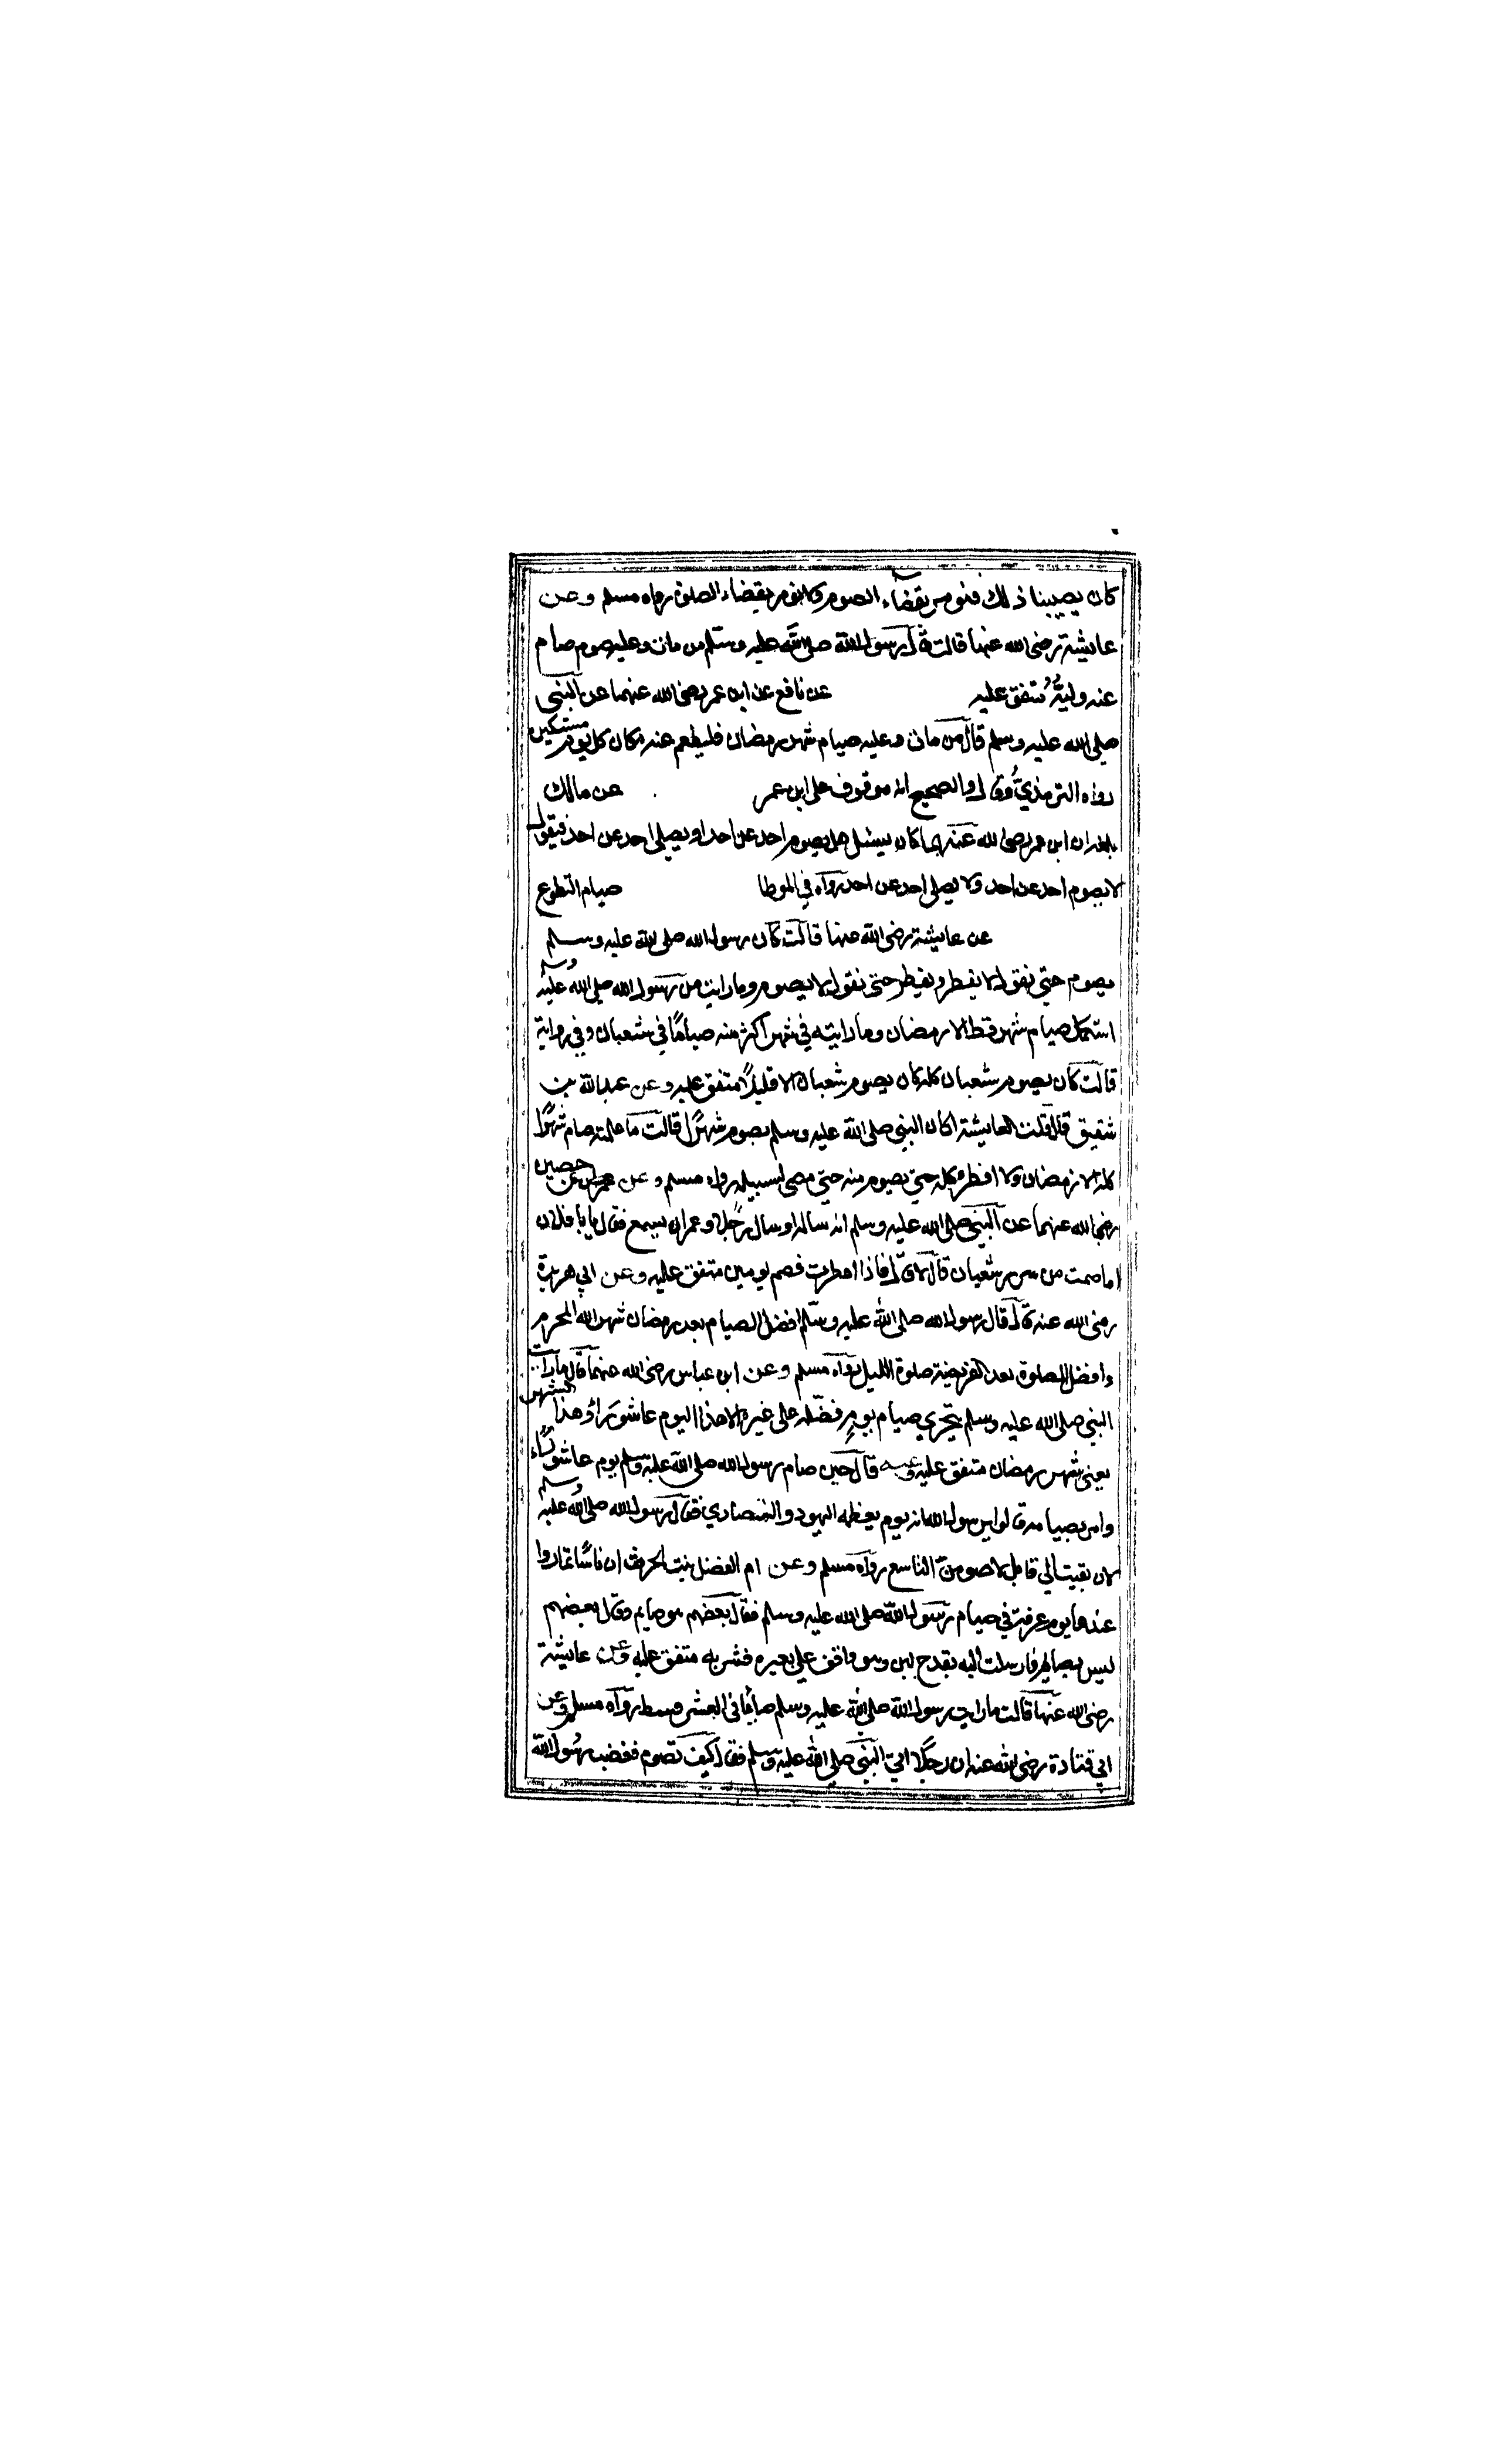 كان يصيبنا ذلك فنومر بقضآء الصوم ولا نومر بقضاء الصلوة رواه مسلم وعن
عايشة رضى الله عنها قالت قال رسول الله صلى الله عليه وسلم من مات وعليه صوم صام
عنه وليّه متفق عليه عن نافع عن ابن عمر رضى الله عنهما عن النبى
صلى الله عليه وسلم قال من مات وعليه صيام شهر رمضان فليطعم عنه مكان كل يوم مسكين
رواه الترمذيّ وقال والصحيح انه موقوف على ابن عمر عن مالك
بلغه ان ابن عمر رضى الله عنهما كان يسئل هل يصوم احد عن احد او يصلى احد عن احد فيقول
لا يصوم احد عن احد ولا يصلى احد عن احد رواه في الموطا صيام التطوع
عن عايشة رضى الله عنها قالت كان رسول الله صلى الله عليه وسلم
يصوم حتى نقول لا يفطر ويفطر حتى نقول لا يصوم وما رايت من رسول الله صلى الله عليه وسلم
استكمل صيام شهر قط الا رمضان وما رايته في شهر اكثر منه صياما في شعبان وفي رواية
قالت كان يصوم شعبان كله كان يصوم شعبان الا قليلاً متفق عليه وعن عبد الله بن
شقيق قال قلت لعايشة اكان النبي صلى الله عليه وسلم يصوم شهرًا قالت ما علمته صام شهرًا
كله الا رمضان ولا افطره كله حتى يصوم منه حتى مضى لسبيله رواه مسلم وعن عمران بن حصين
رضى الله عنهما عن النبي صلى الله عليه وسلم انه ساله او سال رجلا وعمران يسمع فقال يا با فلان
اما صمت من سرر شعبان قال لا قال فاذا افطرت فصم يومين متفق عليه وعن ابي هريرة
رضى الله عنه قال قال رسول الله صلى الله عليه وسلم افضل الصيام بعد رمضان شهر الله المحرم
وافضل الصلوة بعد الفريضة صلوة الليل رواه مسلم وعن ابن عباس رضى الله عنهما قال ما رايت
النبي صلى الله عليه وسلم يتحري صيام يوم فضّله على غيره الا هذا اليوم عاشوراء وهذا الشهر
يعنى شهر رمضان متفق عليه وعنه قال حين صام رسول الله صلى الله عليه وسلم يوم عاشوراء
وامر بصيامه قالوا يرسول الله انه يوم يعظمه اليهود والنصاري فقال رسول الله صلى الله عليه وسلم
لان بقيت الي قابل لاصومنّ التاسع رواه مسلم وعن ام الفضل بنت الحرث ان ناسًا تماروا
عندها يوم عرفة في صيام رسول الله صلى الله عليه وسلم فقال بعضهم هو صايم وقال بعضهم
ليس بصايم فارسلت اليه بقدح لبن وهو واقف علي بعيره فشربه متفق عليه وعن عايشة
رضى الله عنها قالت ما رايت رسول الله صلى الله عليه وسلم صايما في العشر قط رواه مسلم وعن
ابي قتادة رضى الله عنه ان رجلا اتي النبي صلى الله عليه وسلم فقال كيف تصوم فغضب رسول الله